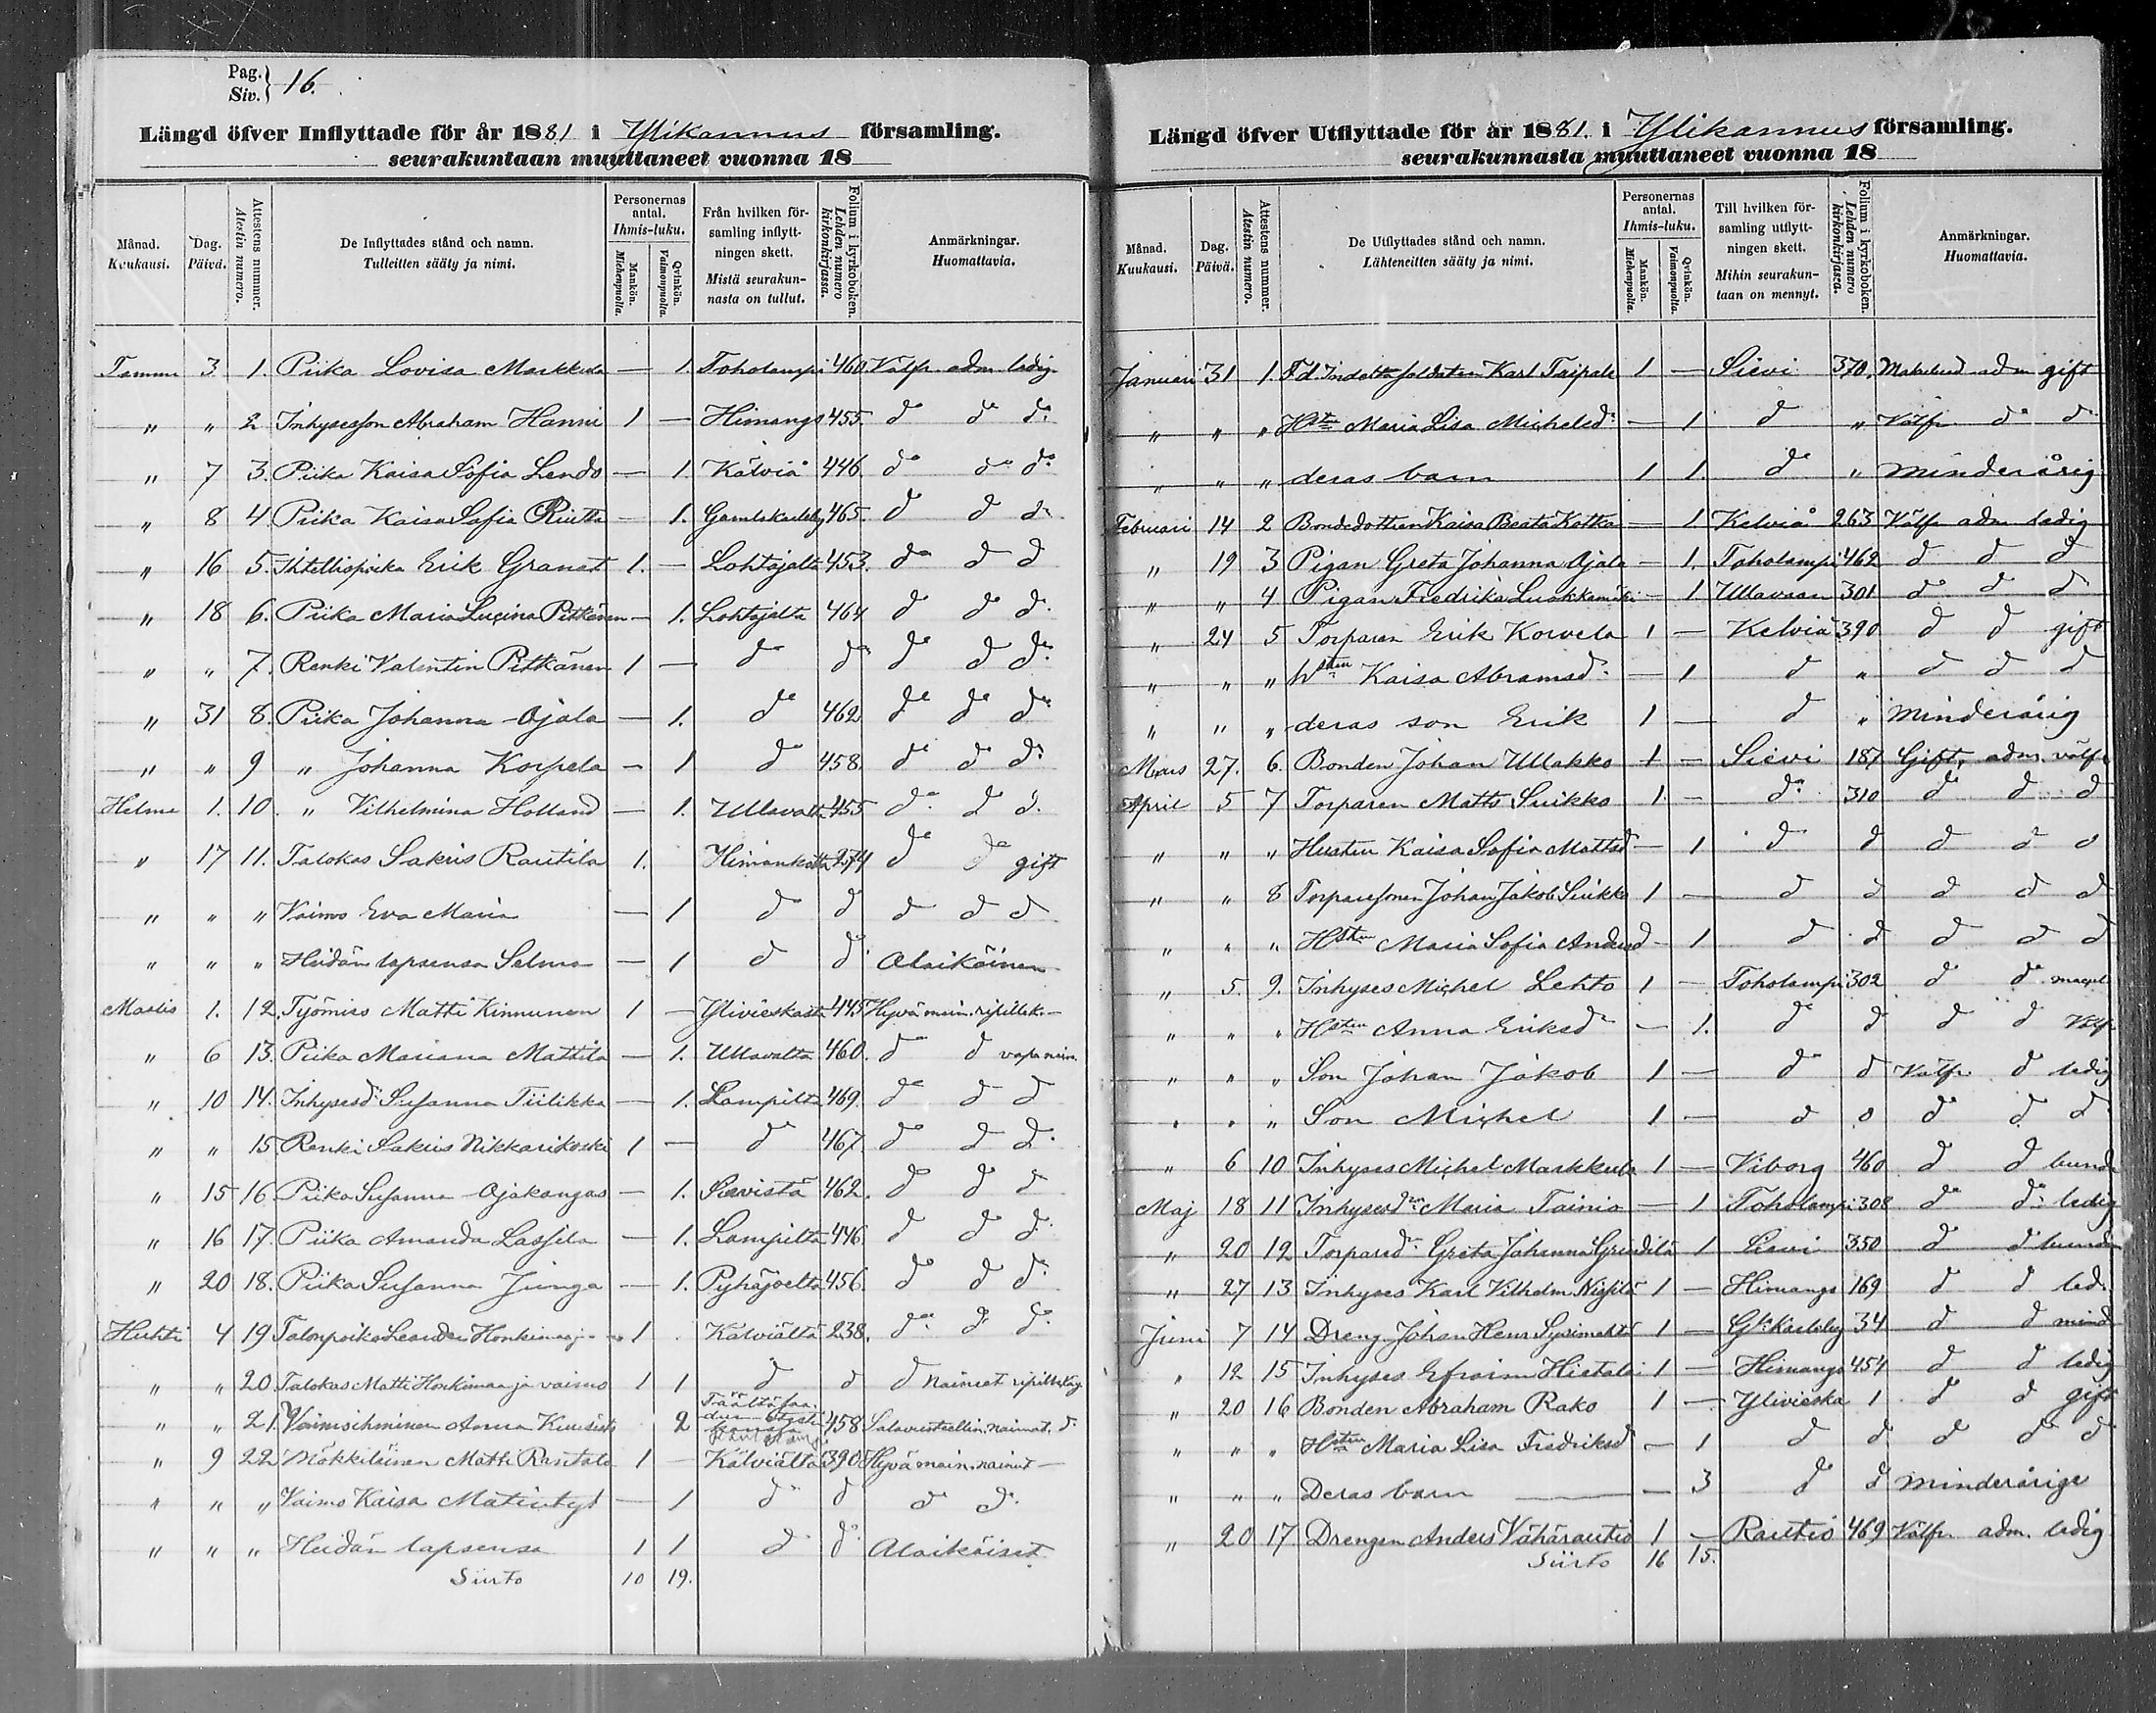 Pag.
Siv. } 16.
Längd öfver Inflyttade för år 1881 i Ylikannus församling.
seurakuntaan muuttaneet vuonna 18
Månad. Kuukausi.
Dag. Päivä.
Attestens nummer. Atestin numero.
De Inflyttades stånd och namn. Tulleitten sääty ja nimi.
Personernas antal. Ihmis-luku.
Mankön. Miehenpuolta.
Qvinkön. Vaimonpuolta.
Från hvilken församling inflyttningen skett. Mistä seurakunnasta on tullut.
Folium i kyrkoboken. Lehden numero kirkonkirjassa.
Anmärkningar. Huomattavia.
Tammi 3 1. Piika Lovisa Markkula — 1. Toholampi 460 Välfr. adm. ledig
" " 2 Inhysesson Abraham Hanni 1 — Himango 455. do do do
" 7 3. Piika Kaisa Sofia Lendo — 1. Kälviå 446. do do do
" 8 4 Piika Kaisa Sofia Riutta — 1. Gamlakarleby 465. d d d
" 16 5. Erik Granat 1. — Lohtajalta 453. do d d
" 18 6. Piika Maria Lucina Pitkänen — 1. Lohtajalta 464 d do d
" " 7. Renki Valentin Pitkänen 1 — do do do d do
" 31 8. Piika Johanna Ojala — 1. do 462 do do do
" " 9 " Johanna Korpela — 1 do 458. do do do
Helme 1. 10. " Vilhelmina Holland — 1. Ullavalta 455 do d d
" 17 11. Talokas Sakris Rautila 1. Himankalta 274 do do gift
" " " Vaimo Eva Maria — 1 d d d d d
" " " Heidän lapsensa Selma — 1 d d Alaikäinen
Maalis 1. 12. Tyomies Matti Kinnunen 1 — Ylivieskasta 445 Hyvä main. ripillä k. —
" 6 13. Piika Mariana Mattila — 1. Ullavalta 460. do d vapa naim.
" 10 14. Inhysesd. Susanna Tiilikka — 1. Lampilta 469. do d d
" " 15 Renki Sakris Nikkarikoski 1 — do 467. do d d
" 15 16 Piika Susanna Ojakangas — 1. Sievistä 462. d d d
" 16 17. Piika Amanda Lassila — 1. Lampilta 446 d d d
" 20 18. Piika Susanna Junga — 1. Pyhäjoelta 456. do d d
Huhti 4 19 Talonpoika Leander Honkimaa 1 Kälviältä 238. do d do
" " 20 Talokas Matti Honkimaa ja vaimo 1 1 d d d Naineet
" " 21. Vaimoihminen Anna Kuusisto 2 458
" 9 22 Mökkiläinen Matti Rantala 1 — Kälviältä 390 Hyvä main. nainut —
" " " Vaimo Kaisa Matintyt. — 1 do d d d.
" " " Heidän lapsensa 1 1 d d Alaikäiset.
Siirto 10 19.
Längd öfver Utflyttade för år 1881. i Ylikannus församling.
seurakunnasta muuttaneet vuonna 18
Månad. Kuukausi.
Dag. Päivä.
Attestens nummer. Atestin numero.
De Utflyttades stånd och namn. Lähteneitten sääty ja nimi.
Personernas antal. Ihmis-luku.
Mankön. Miehenpuolta.
Qvinkön. Vaimonpuolta.
Till hvilken församling utflyttningen skett. Mihin seurakuntaan on mennyt.
Folium i kyrkoboken. Lehden numero kirkonkirjassa.
Anmärkningar. Huomattavia.
Januari 31 1. F.d. Indelta soldaten Karl Taipale 1 — Sievi 370. adm gift
" " " Hst. Maria Lisa Michelsd. — 1 d " Välfr d d
" " " deras barn 1 1. do " Minderårig
Februari 14 2 Bondedottren Kaisa Beata Kotka — 1 Kelviå 263 Välfr adm ledig
" 19 3 Pigan Greta Johanna Ojala — 1. Toholampi 462 d d d
" " 4 Pigan Fredrika Luokkamäki — 1 Ullavaan 301 do d d
" 24 5 Torparen Erik Korvela 1 — Kelviå 390 d d gift
" " " Hsten Kaisa Abramsd. — 1 d " d d d
" " " deras son Erik 1 — d " Minderårig
Mars 27. 6. Bonden Johan Ullakko 1 — Sievi 187 Gift, adm. välfr
April 5 7 Torparen Matts Suikko 1 — do 310 do d d
" " " Hustrun Kaisa Sofia Mattsd — 1 d d d d d
" " 8 Torparesonen Johan Jakob Suikko 1 — d d d d d
" " " Hsten Maria Sofia Andersd — 1 d d d d d
" 5. 9. Inhyses Michel Lehto 1 — Toholampi 302 d do
" " " Hsten Anna Eriksd — 1. d d d d Välfr
" " " Son Johan Jakob 1 — do d Välfr. d ledig
" " " Son Michel 1 — d d do d d
" 6 10 Inhyses Michel Markkula 1 — Viborg 460 d d bund
Maj 18 11 Inhysesd. Maria Tainio — 1 Toholampi 308 do do ledig
" 20 12 Torpared. Greta Johanna Grundila 1 Sievi 350 d d bunden
" 27 13 Inhyses Karl Vilhelm Nissilä 1 — Himango 169 d d led.
Juni 7 14 Dreng. Johan Henr Sysimettä 1 — Gk Karleby 34 d d mind
" 12 15 Inhyses Efraim Hietala 1 — Himango 454 d d ledig
" 20 16 Bonden Abraham Rako 1 — Ylivieska 1 d d gift
" " " Hsten Maria Lisa Fredriksd — 1 d d d do d
" " " Deras barn — 3 do d Minderårige
" 20 17 Drengen Anders Vähärautio 1 — Rautio 469 Välfr. adm. ledig
Siirto 16 15.